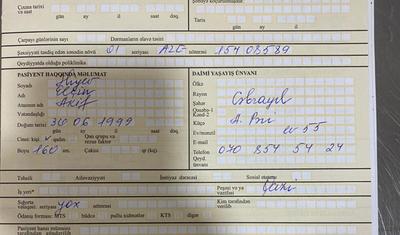 Çıxma tarixi və saatı
gün ay il saat dəq.
Tarix
gün ay il
Çarpayı günlərinin sayı Dərmanların əlavə təsiri
Şəxsiyyəti təsdiq edən sənədin növü 01 seriyası AZE nömrəsi 15408589
Qeydiyyatda olduğu poliklinika
PASİYENT HAQQINDA MƏLUMAT
Soyadı Əliyev
Adı Elçin
Atasının adı Akif
Vətəndaşlığı
Doğum tarixi 30 06 1999
gün ay il
Cinsi: kişi qadın Qan qrupu və rezus faktor
Boyu 160 sm. Çəkisi qr (kq).
DAİMİ YAŞAYIŞ ÜNVANI
Ölkə
Rayon
Şəhər Cəbrayıl
Qəsəbə-1 Kənd-2
Küçə
Ev/mənzil ev 55
E-mail
Telefon 070 854 54 24
Qeyd. ünvanı
Təhsili Ailə vəziyyəti İmtiyaz dərəcəsi Sosial statusu
İş yeri* Peşəsi və ya vəzifəsi
Sığorta vəsiqəsi: seriyası yox nömrəsi Kim tərəfindən verilib
Ödəniş forması: MTS büdcə pullu xidmətlər KTS digər